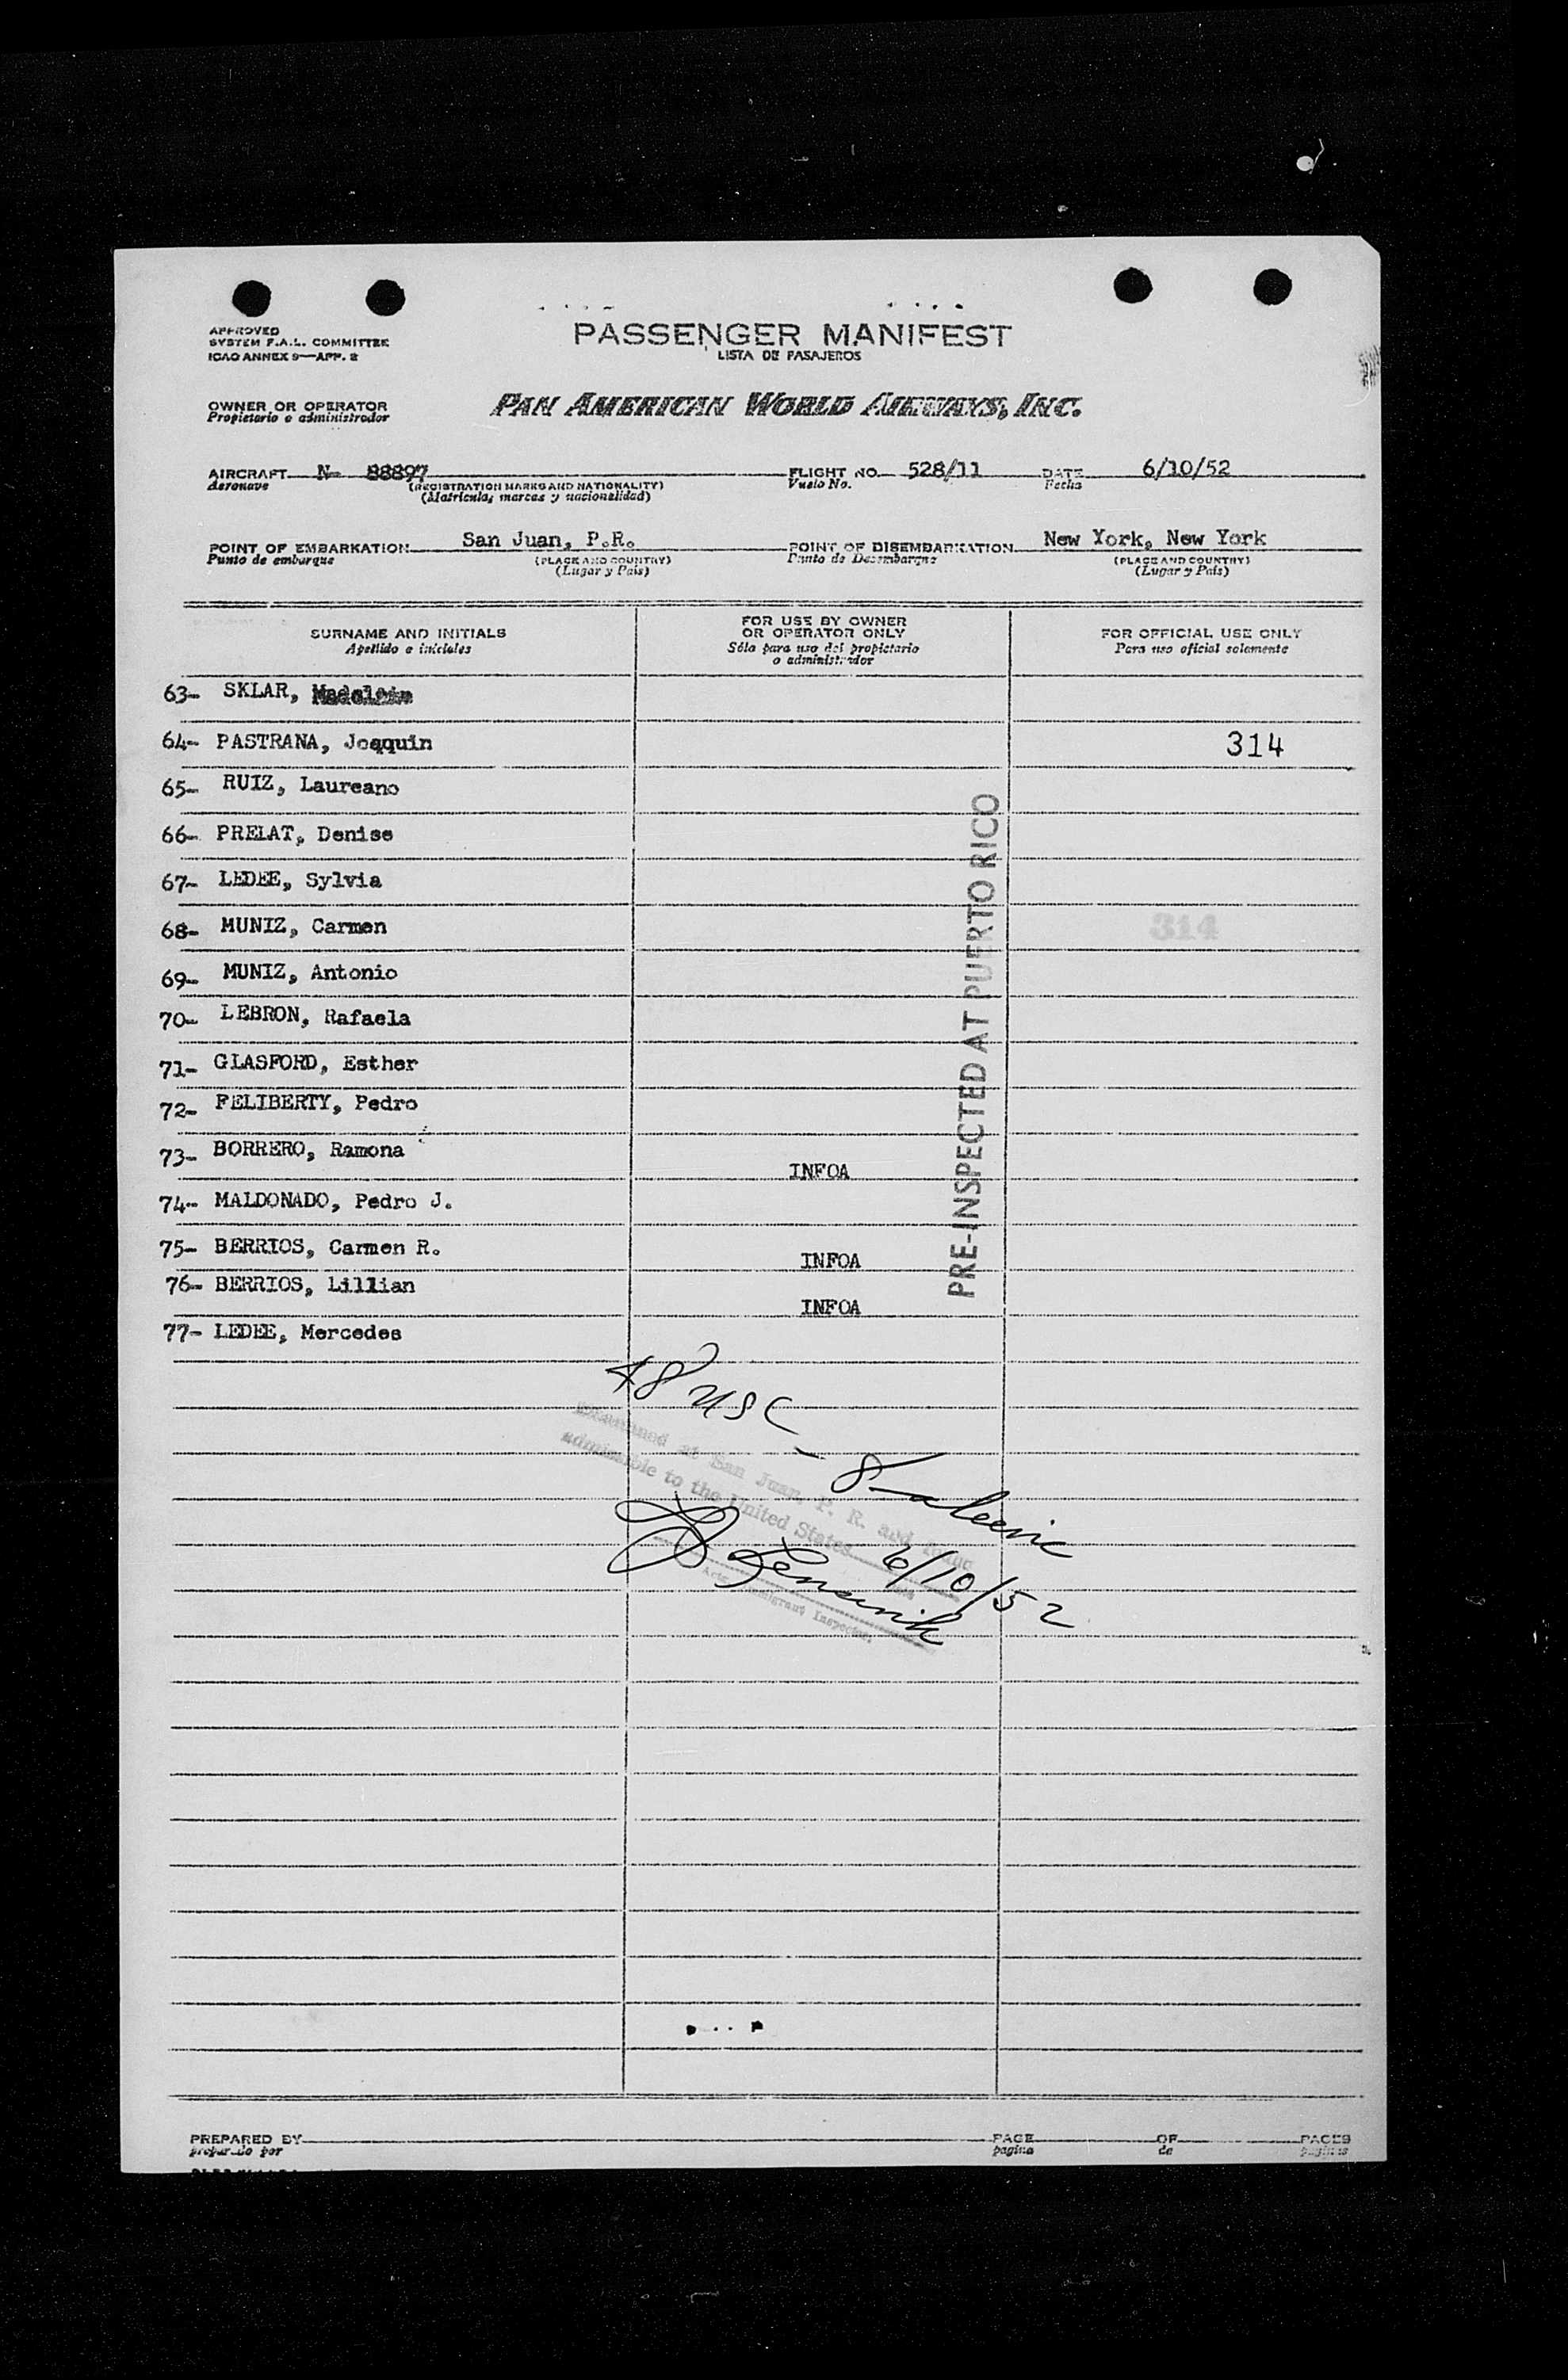 APPROVED
SYSTEM F.A.L. COMMITTEE
ICAO ANNEX 9—APP. 2
PASSENGER MANIFEST
LISTA DE PASAJEROS
OWNER OR OPERATOR
Propietario o administrador
PAN AMERICAN WORLD AIRWAYS, INC.
AIRCRAFT N- 88897 FLIGHT NO. 528/11 DATE 6/10/52
Aeronave (REGISTRATION MARKS AND NATIONALITY) Vuelo No. Fecha
(Matrícula, marcas y nacionalidad)
POINT OF EMBARKATION San Juan, P.R. POINT OF DISEMBARKATION New York, New York
Punto de embarque (PLACE AND COUNTRY) Punto de Desembarque (PLACE AND COUNTRY)
(Lugar y País) (Lugar y País)
SURNAME AND INITIALS
Apellido e iniciales
FOR USE BY OWNER
OR OPERATOR ONLY
Sólo para uso del propietario
o administrador
FOR OFFICIAL USE ONLY
Para uso oficial solamente
63- SKLAR, Madeleine
64- PASTRANA, Joaquin 314
65- RUIZ, Laureano
66- PRELAT, Denise
67- LEDEE, Sylvia
68- MUNIZ, Carmen 314
69- MUNIZ, Antonio
70- LEBRON, Rafaela
71- GLASFORD, Esther
72- FELIBERTY, Pedro
73- BORRERO, Ramona INFOA
74- MALDONADO, Pedro J.
75- BERRIOS, Carmen R. INFOA
76- BERRIOS, Lillian INFOA
77- LEDEE, Mercedes
PRE-INSPECTED AT PUERTO RICO
48 USC - 8
Examined at San Juan, P. R. and found
admissible to the United States
6/10/52
Immigrant Inspector.
PREPARED BY PAGE OF PAGES
preparado por pagina de paginas